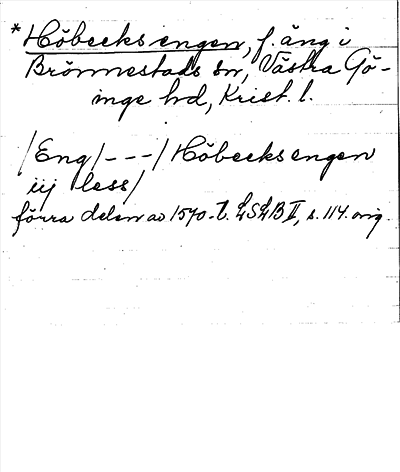 *Höbecks engen, f. äng i
Brönnestads sn, Västra Gö-
inge hd, Krist. l.
/Eng/---/Höbecks engen
iij less/
förra delen av 1570-t. LSLB II, s. 114. orig.